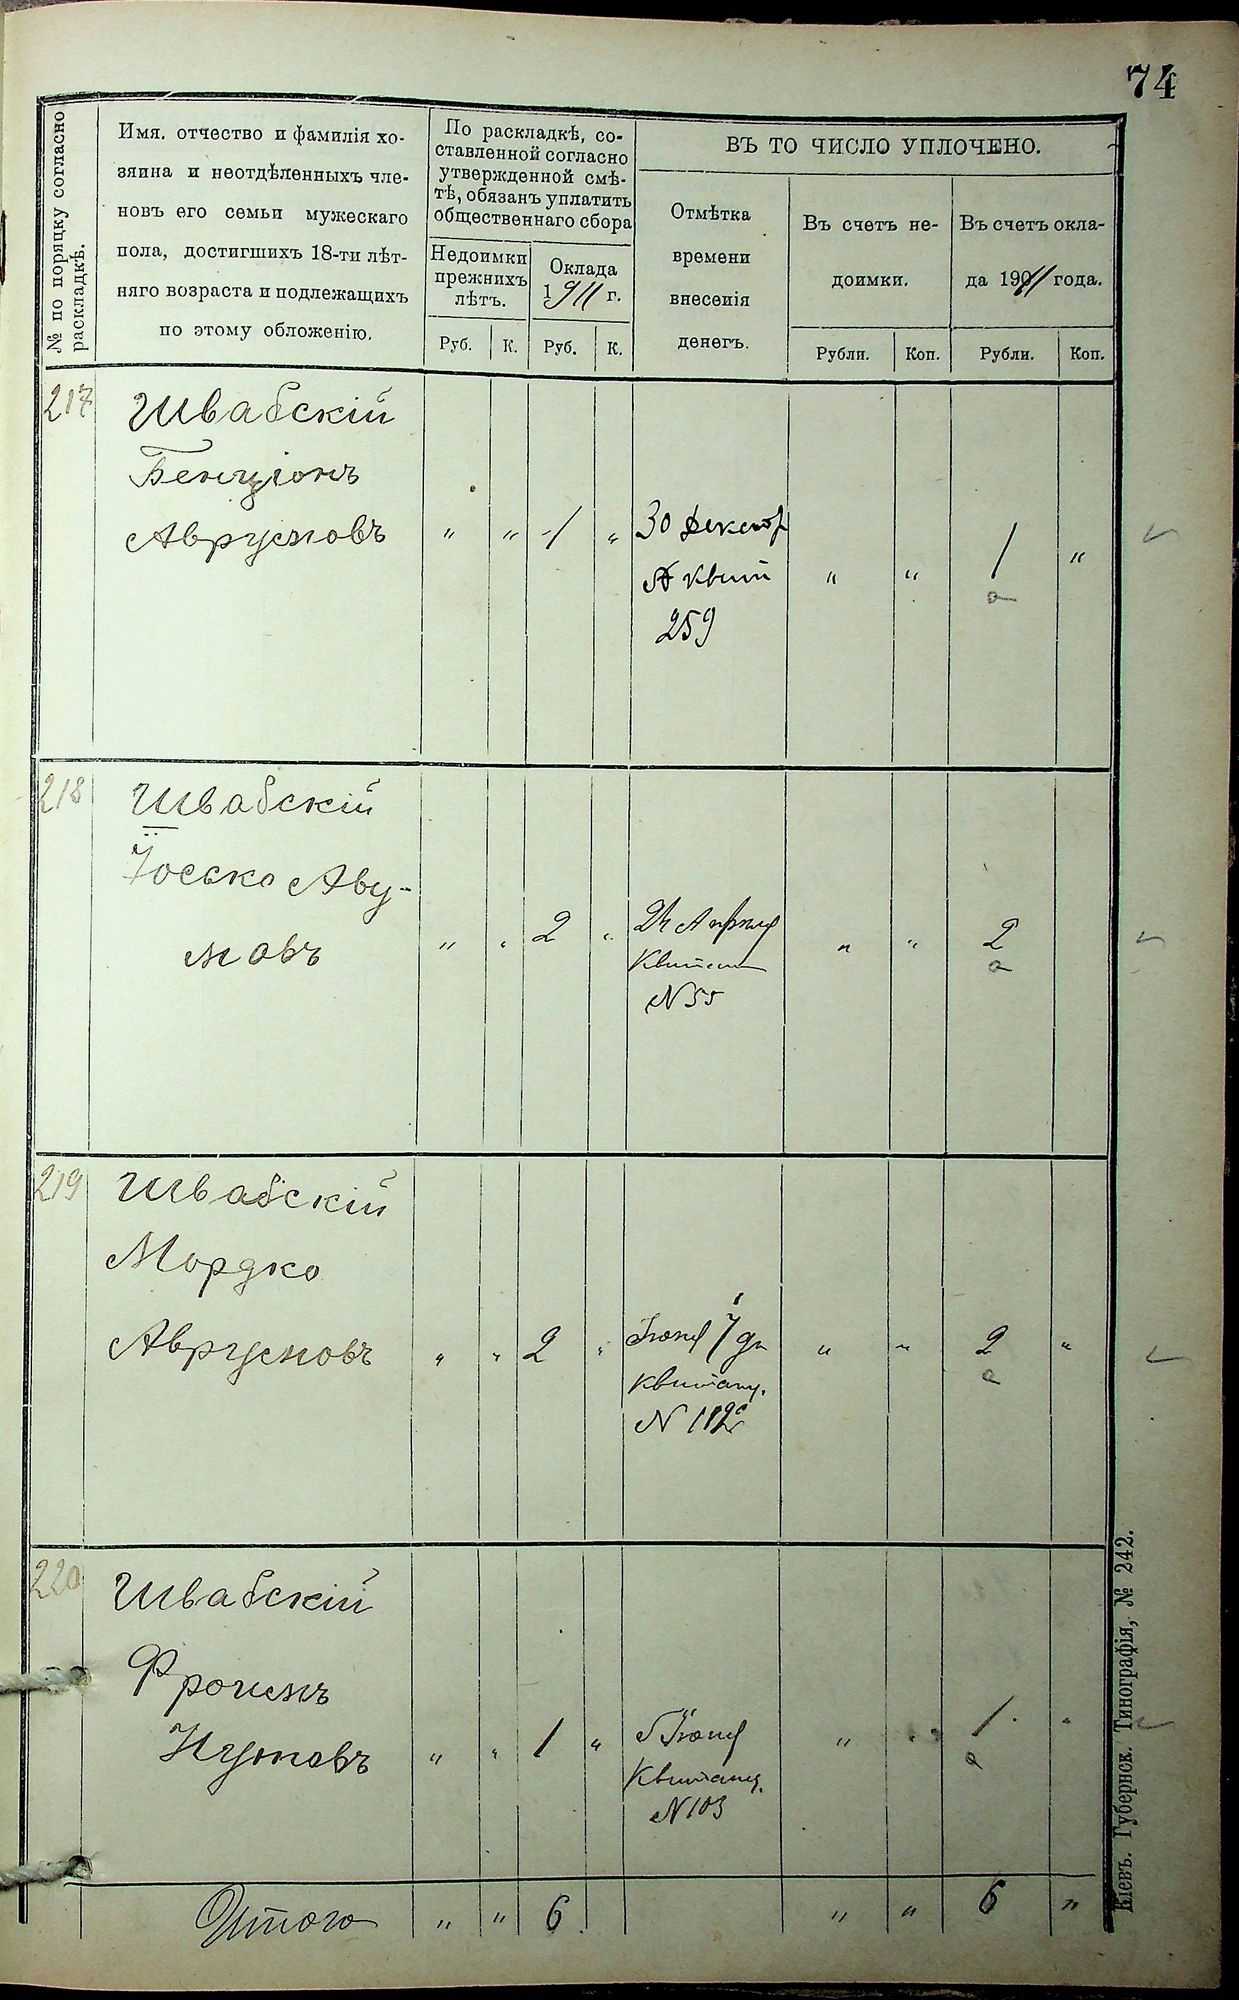 74
№ по порядку согласно
раскладкѣ.
Имя, отчество и фамилія хо-
зяина и неотдѣленныхъ чле-
новъ его семьи мужескаго
пола, достигшихъ 18-ти лѣт-
няго возраста и подлежащихъ
по этому обложенію.
По раскладкѣ, со-
ставленной согласно
утвержденной смѣ-
тѣ, обязанъ уплатить
общественнаго сбора
Недоимки
прежнихъ
лѣтъ.
Оклада
1911 г.
Руб.
К.
Руб.
К.
ВЪ ТО ЧИСЛО УПЛОЧЕНО.
Отмѣтка
времени
внесенія
денегъ.
Въ счетъ не-
доимки.
Въ счетъ окла-
да 1911 года.
Рубли.
Коп.
Рубли.
Коп.
217
Швабскій
Бенціонъ
Аврумовъ
" " 1 "
30 Декабр
Квит
259
" " 1 "
218
Швабскій
Іосько Аву-
мовъ
" " 2 "
24 Апрѣля
Квитан
N 55
" " 2
219
Швабскій
Мордко
Аврумовъ
" " 2 "
Іюня 7 дн
квитанц.
N 112
" " 2 "
220
Швабскій
Фроимъ
Нутовъ
" " 1 "
Іюня
Квитанц.
N 103
" " 1 "
Итого " " 6 " " 6 "
Кіевъ. Губернск. Типографія, № 242.